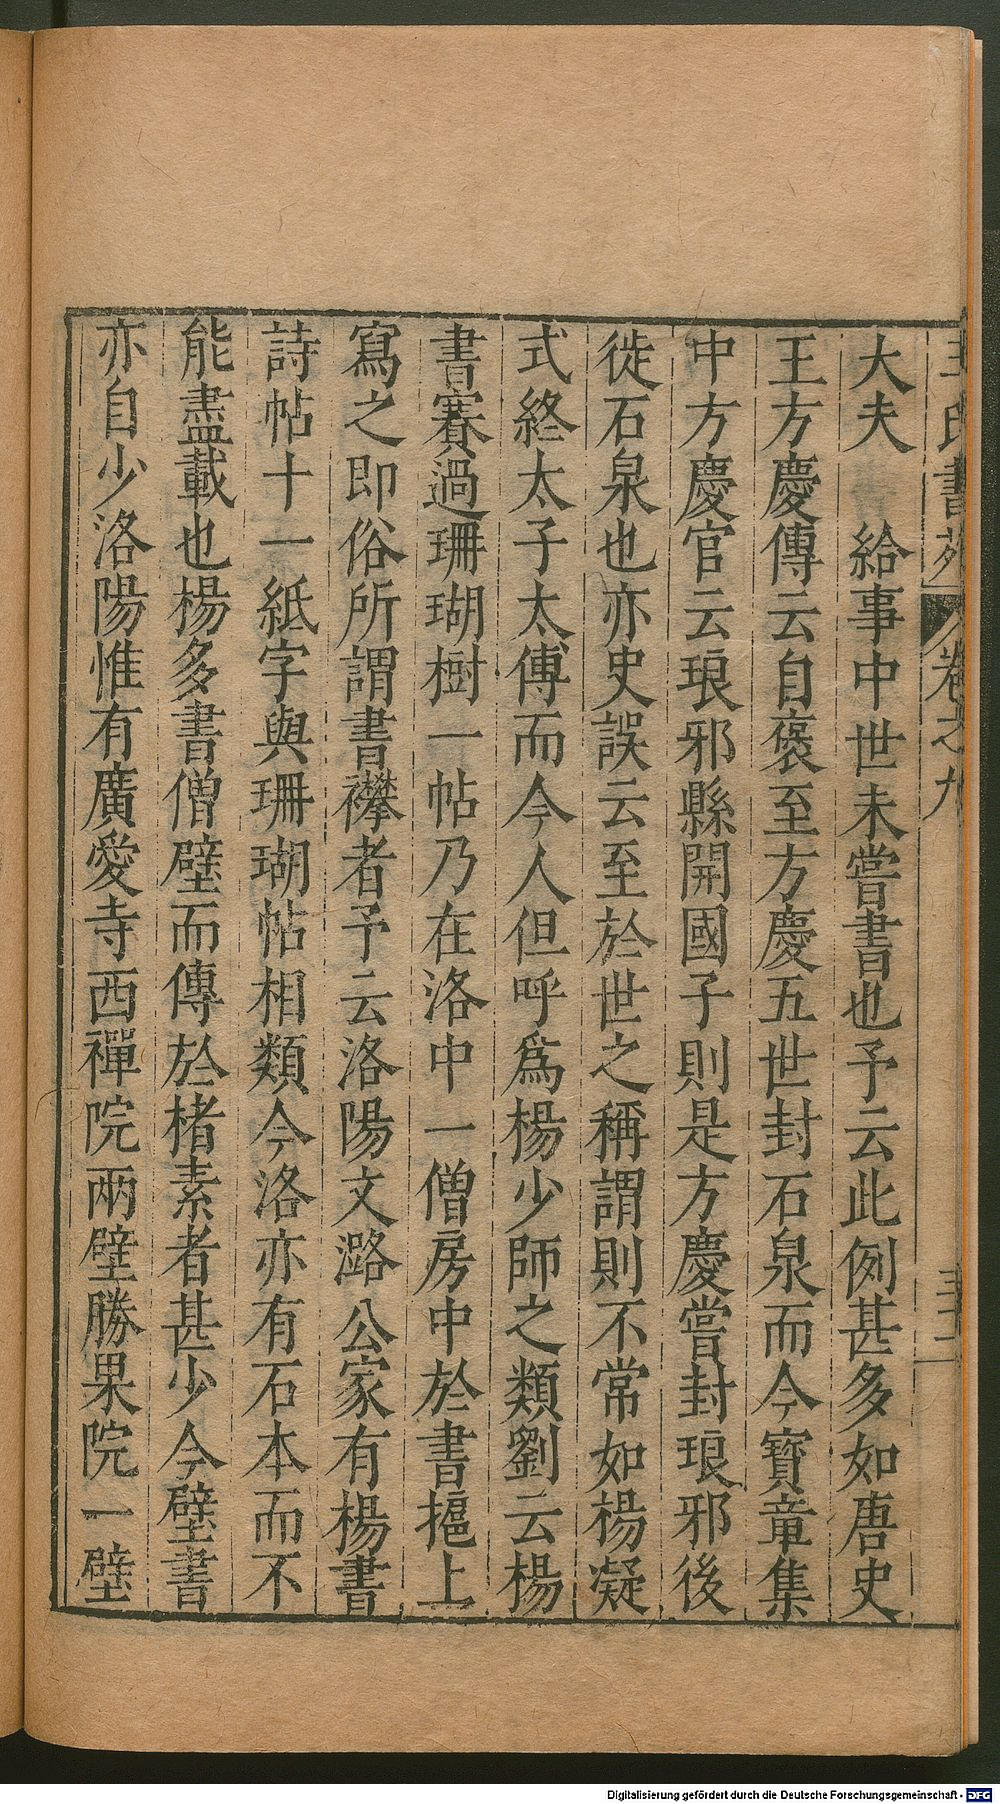 王氏書苑 卷之九 三十二
大夫 給事中世未嘗書也予云此例甚多如唐史
王方慶傳云自褒至方慶五世封石泉而今寶章集
中方慶官云琅邪縣開國子則是方慶嘗封琅邪後
徙石泉也亦史誤云至於世之稱謂則不常如楊凝
式終太子太傅而今人但呼爲楊少師之類劉云楊
書賽過珊瑚樹一帖乃在洛中一僧房中於書㧪上
寫之即俗所謂書襻者予云洛陽文潞公家有楊書
詩帖十一紙字與珊瑚帖相類今洛亦有石本而不
能盡載也楊多書僧壁而傳於楮素者甚少今壁書
亦自少洛陽惟有廣愛寺西禪院兩壁勝果院一壁
Digitalisierung gefördert durch die Deutsche Forschungsgemeinschaft - DFG